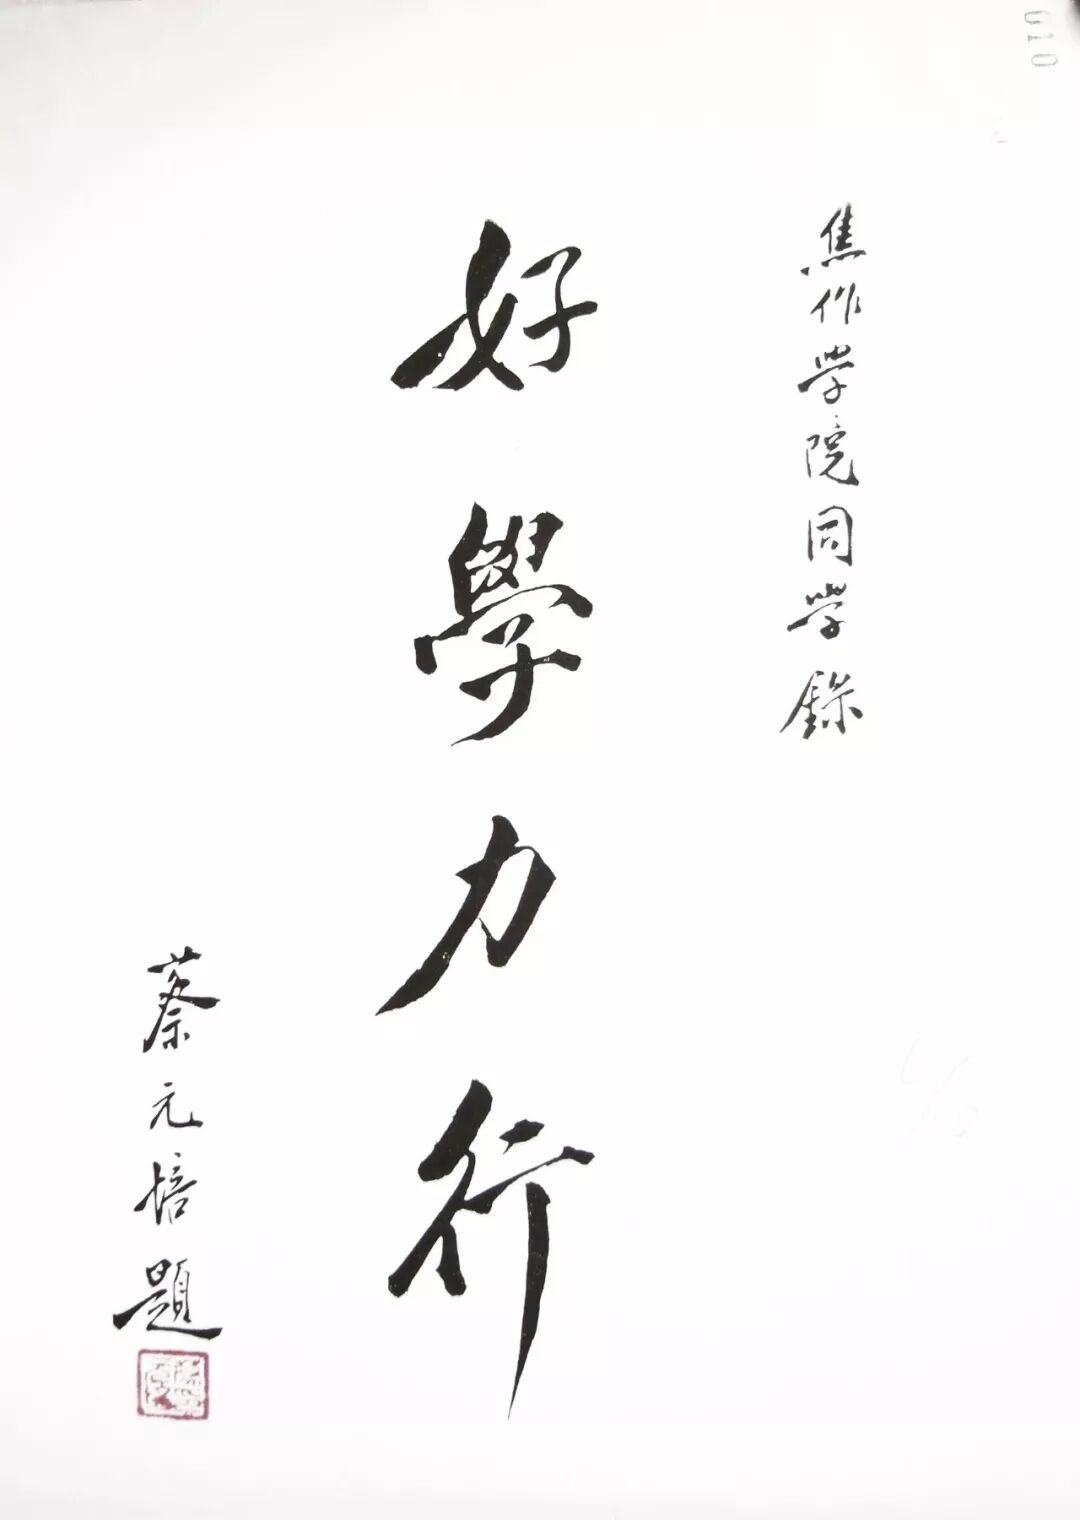 焦作学院同学錄
好學力行
蔡元培題
010